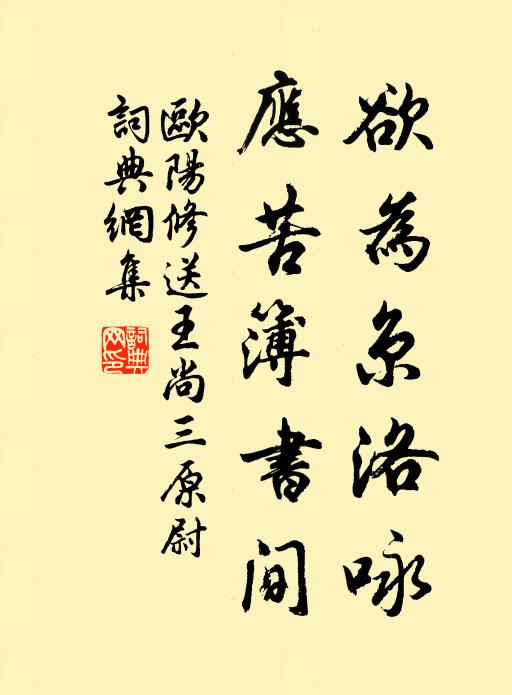 欲為京洛咏
應苦簿書間
歐陽修送王尚三原尉
詞典網集
詞典網印